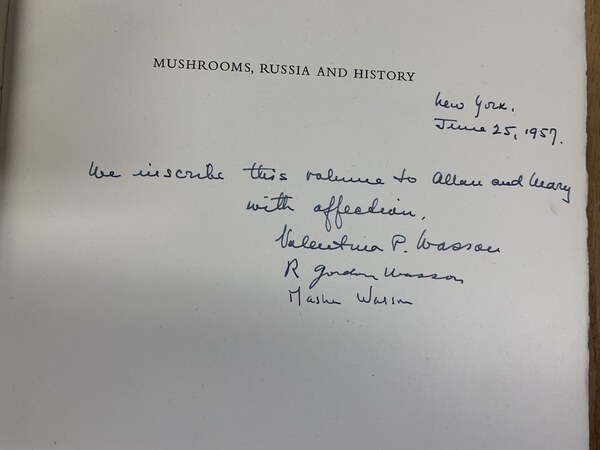 MUSHROOMS, RUSSIA AND HISTORY
New York.
June 25, 1957.
We inscribe this volume to Allan and Mary
with affection.
Valentina P. Wasson
R Gordon Wasson
Masha Wasson